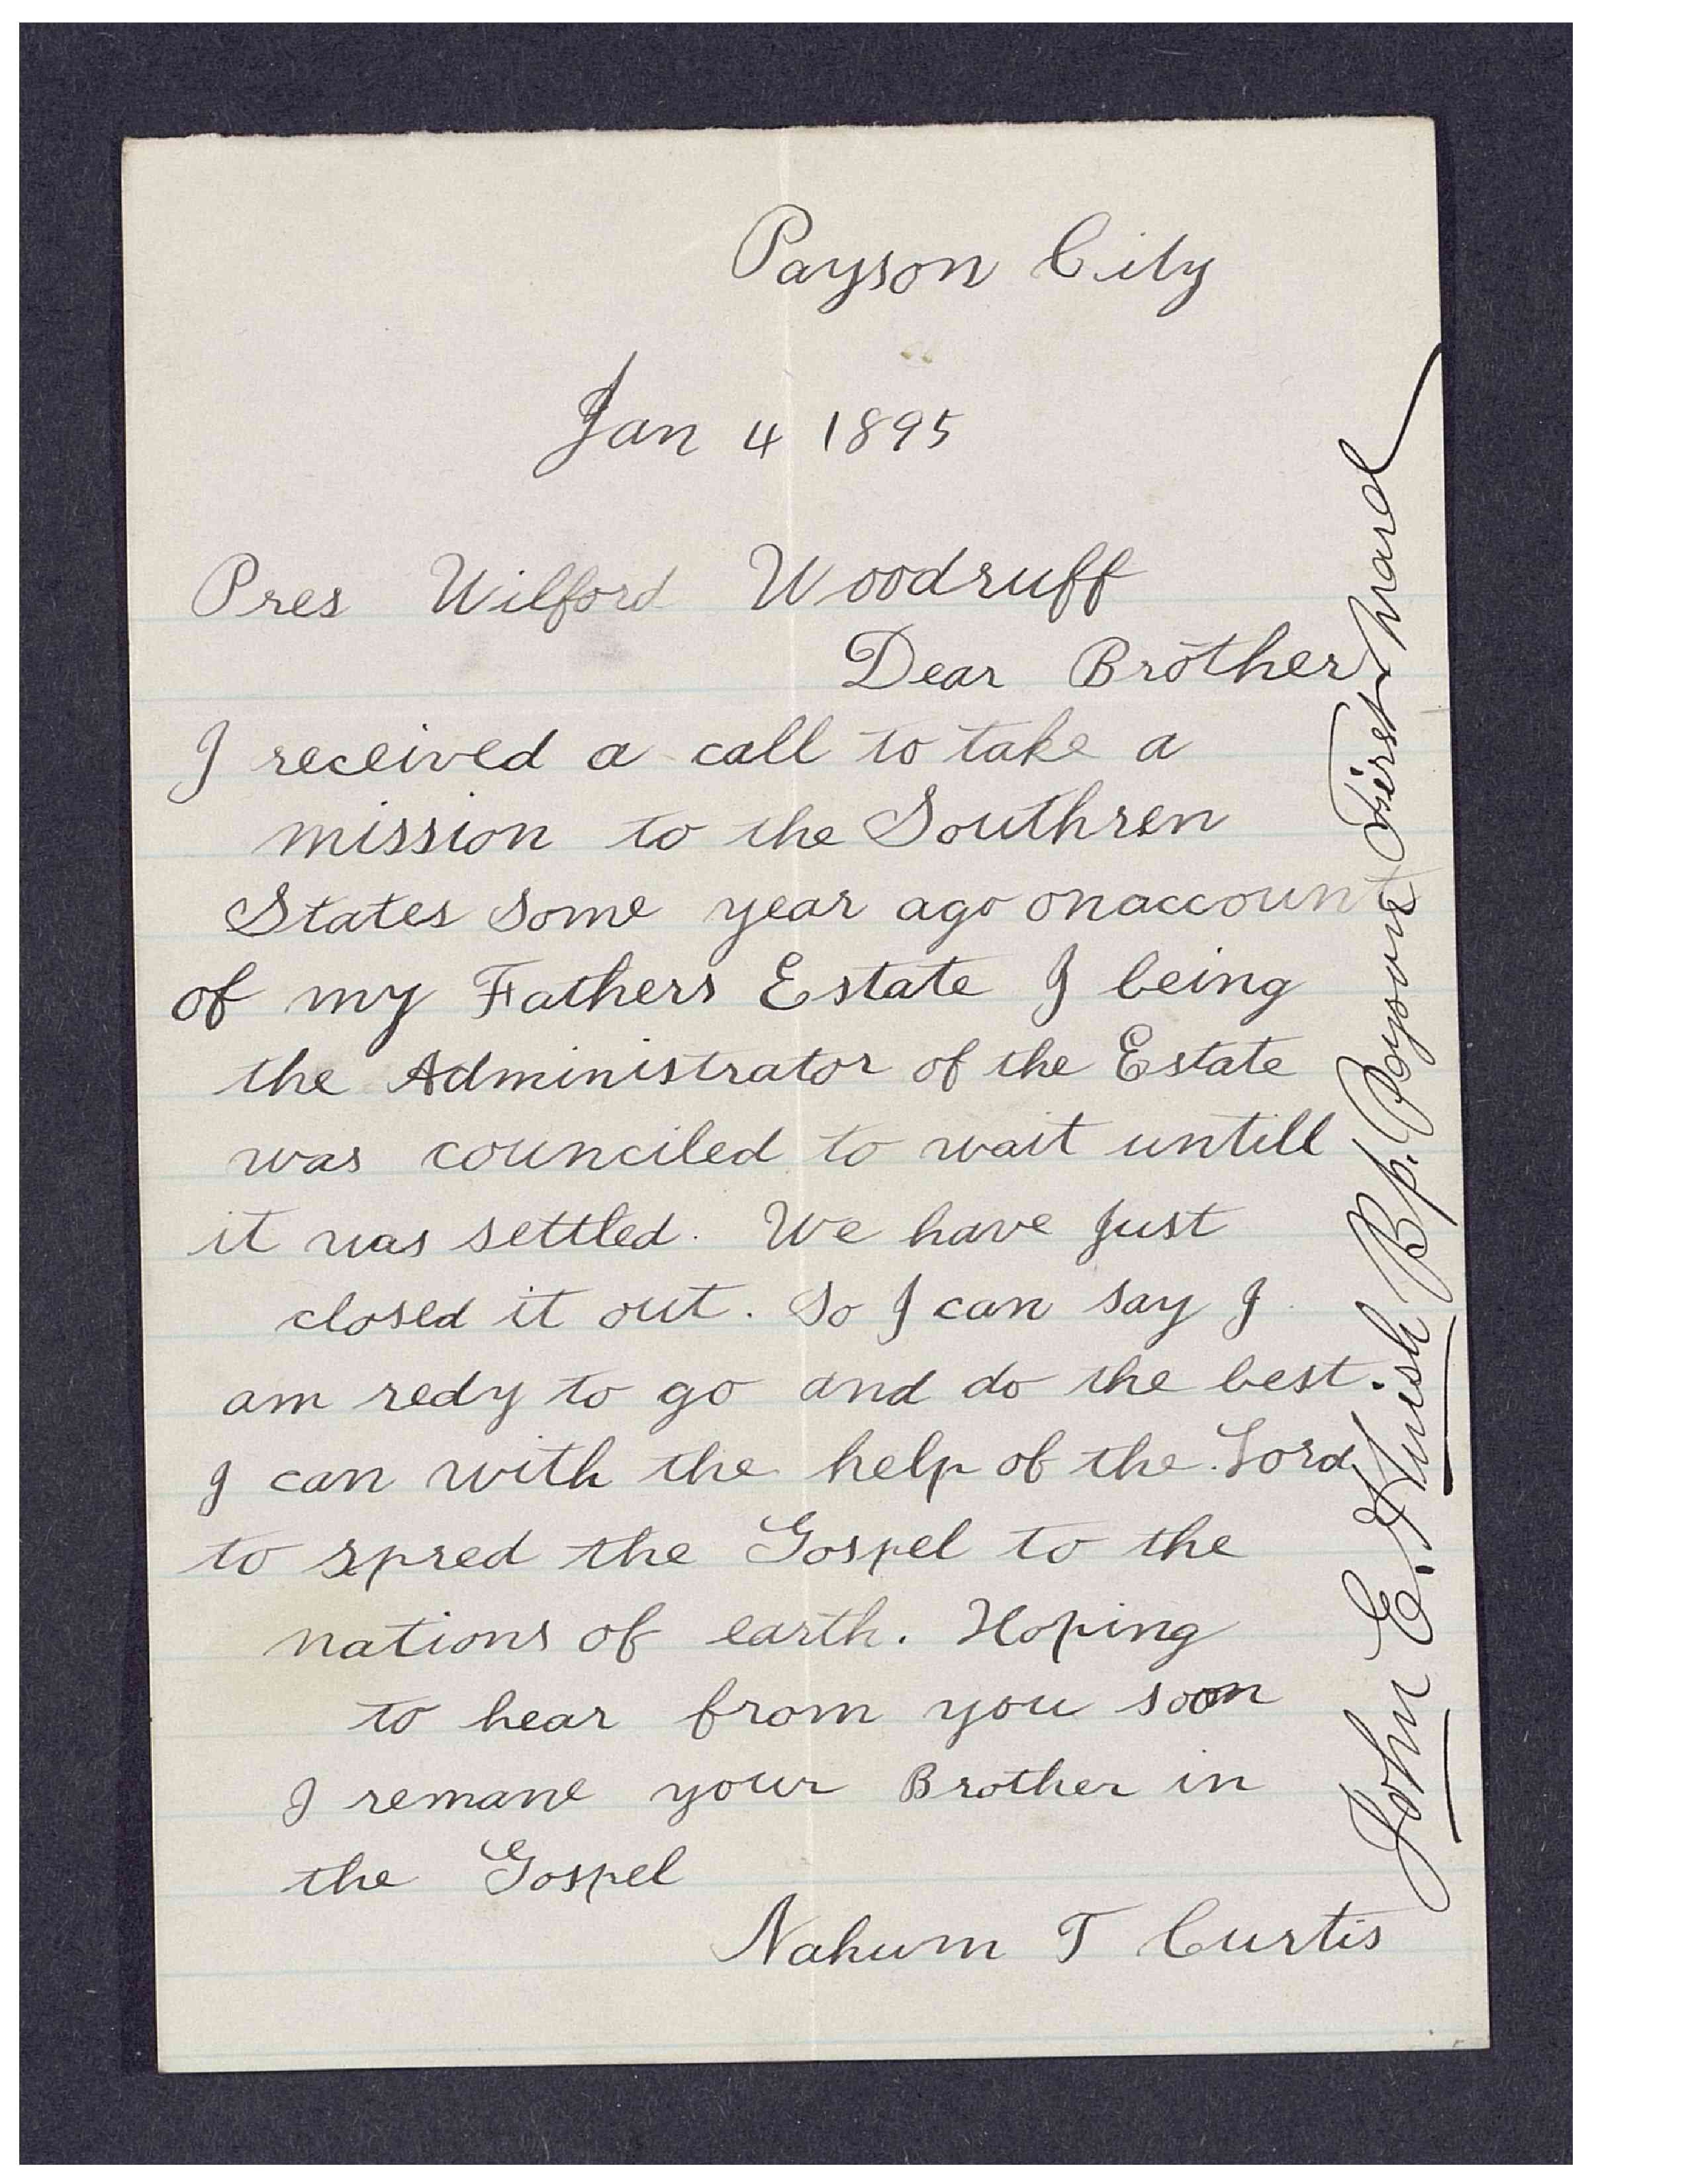 Payson City
Jan 4 1895
Pres Wilford Woodruff
Dear Brother
I received a call to take a
mission to the Southren
States some year ago onaccount
of my Fathers Estate I being
the Administrator of the Estate
was counciled to wait untill
it was settled. We have just
closed it out. So I can say I
am redy to go and do the best.
I can with the help of the Lord
to spred the Gospel to the
nations of earth. Hoping
to hear from you soon
I remane your Brother in
the Gospel
Nahum T Curtis
John E. Huish Bp. Payson First Ward